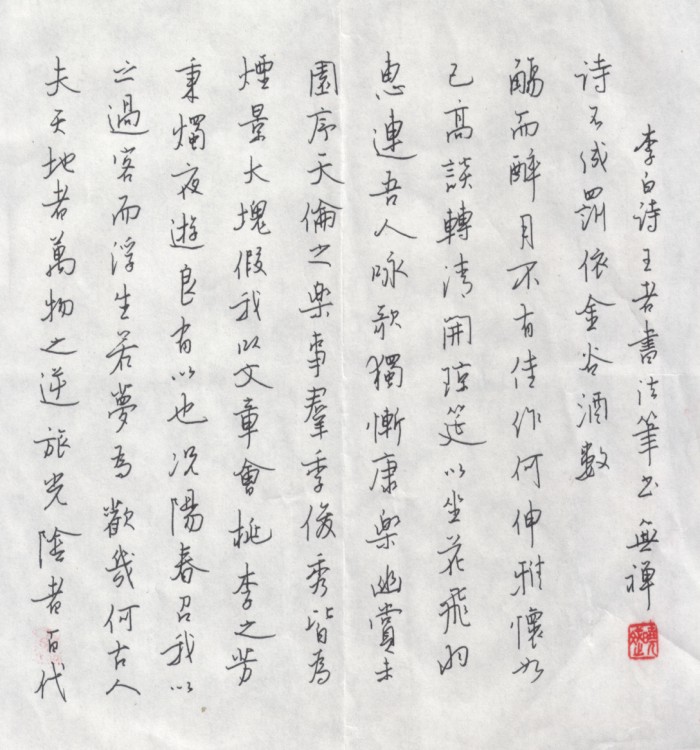 夫天地者萬物之逆旅光陰者百代
之過客而浮生若夢為歡幾何古人
秉燭夜遊良有以也況陽春召我以
煙景大塊假我以文章會桃李之芳
園序天倫之樂事羣季俊秀皆為
惠連吾人咏歌獨慚康樂幽賞未
已高談轉清開瓊筵以坐花飛羽
觴而醉月不有佳作何伸雅懷如
詩不成罰依金谷酒數
李白诗王者書法筆书無禅